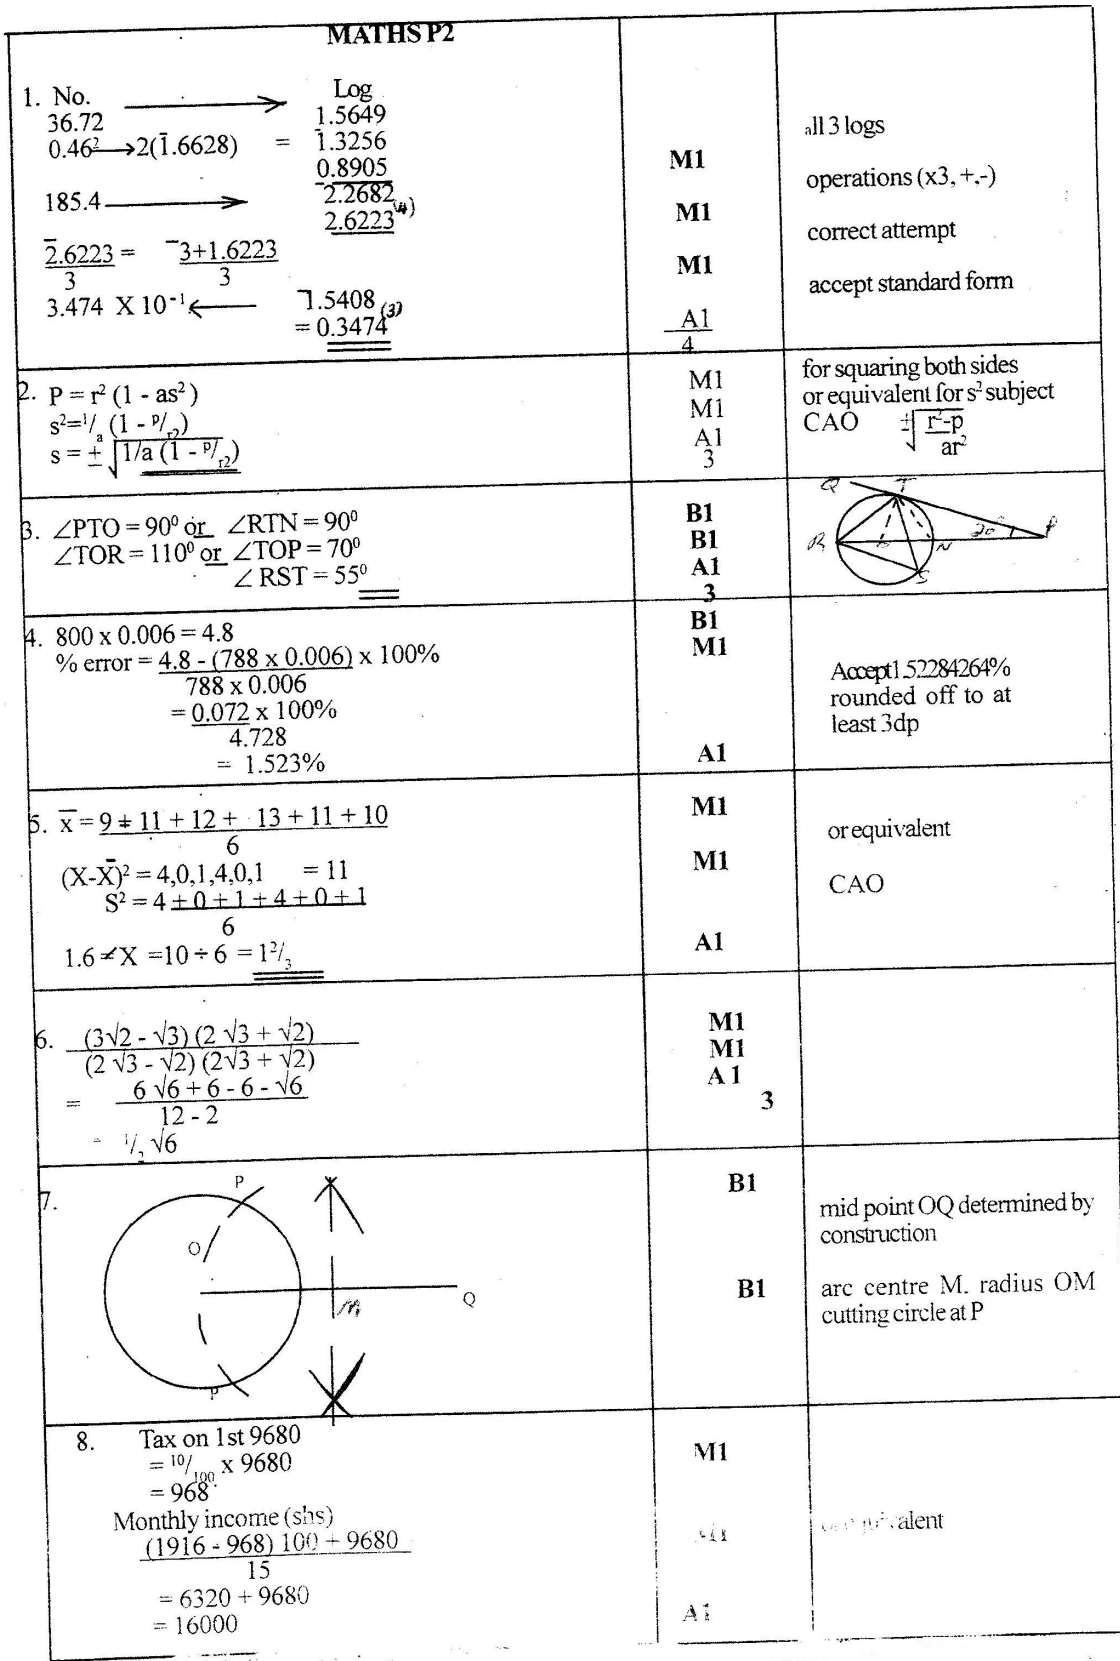 MATHS P2
1. No. ⟶ Log
36.72 1.5649
0.46² ⟶ 2(1̄.6628) = 1̄.3256
0.8905
185.4 ⟶ 2.2682
2̄.6223 (4)
2̄.6223 = ¯3+1.6223
3 3
3.474 X 10⁻¹ ⟵ 1̄.5408 (3)
= 0.3474
M1
M1
M1
A1
4
all 3 logs
operations (x3, +,-)
correct attempt
accept standard form
2. P = r² (1 - as²)
s²=¹/a (1 - ᵖ/r2)
s = ± √1/a (1 - ᵖ/r2)
M1
M1
A1
3
for squaring both sides
or equivalent for s² subject
CAO ±√r²-p
ar²
3. ∠PTO = 90⁰ or ∠RTN = 90⁰
∠TOR = 110⁰ or ∠TOP = 70⁰
∠ RST = 55⁰
B1
B1
A1
3
Q T
R N 20° P
S
4. 800 x 0.006 = 4.8
% error = 4.8 - (788 x 0.006) x 100%
788 x 0.006
= 0.072 x 100%
4.728
= 1.523%
B1
M1
A1
Accept 1.52284264%
rounded off to at
least 3dp
5. x̄ = 9 + 11 + 12 + 13 + 11 + 10
6
(X-X̄)² = 4,0,1,4,0,1 = 11
S² = 4 + 0 + 1 + 4 + 0 + 1
6
1.6 X =10 ÷ 6 = 1²/₃
M1
M1
A1
or equivalent
CAO
6. (3√2 - √3) (2 √3 + √2)
(2 √3 - √2) (2√3 + √2)
= 6 √6 + 6 - 6 - √6
12 - 2
= ¹/₂ √6
M1
M1
A 1
3
7.
P
O
M Q
P
B1
B1
mid point OQ determined by
construction
arc centre M. radius OM
cutting circle at P
8. Tax on 1st 9680
= ¹⁰/₁₀₀ x 9680
= 968
Monthly income (shs)
(1916 - 968) 100 + 9680
15
= 6320 + 9680
= 16000
M1
M1
A1
or equivalent